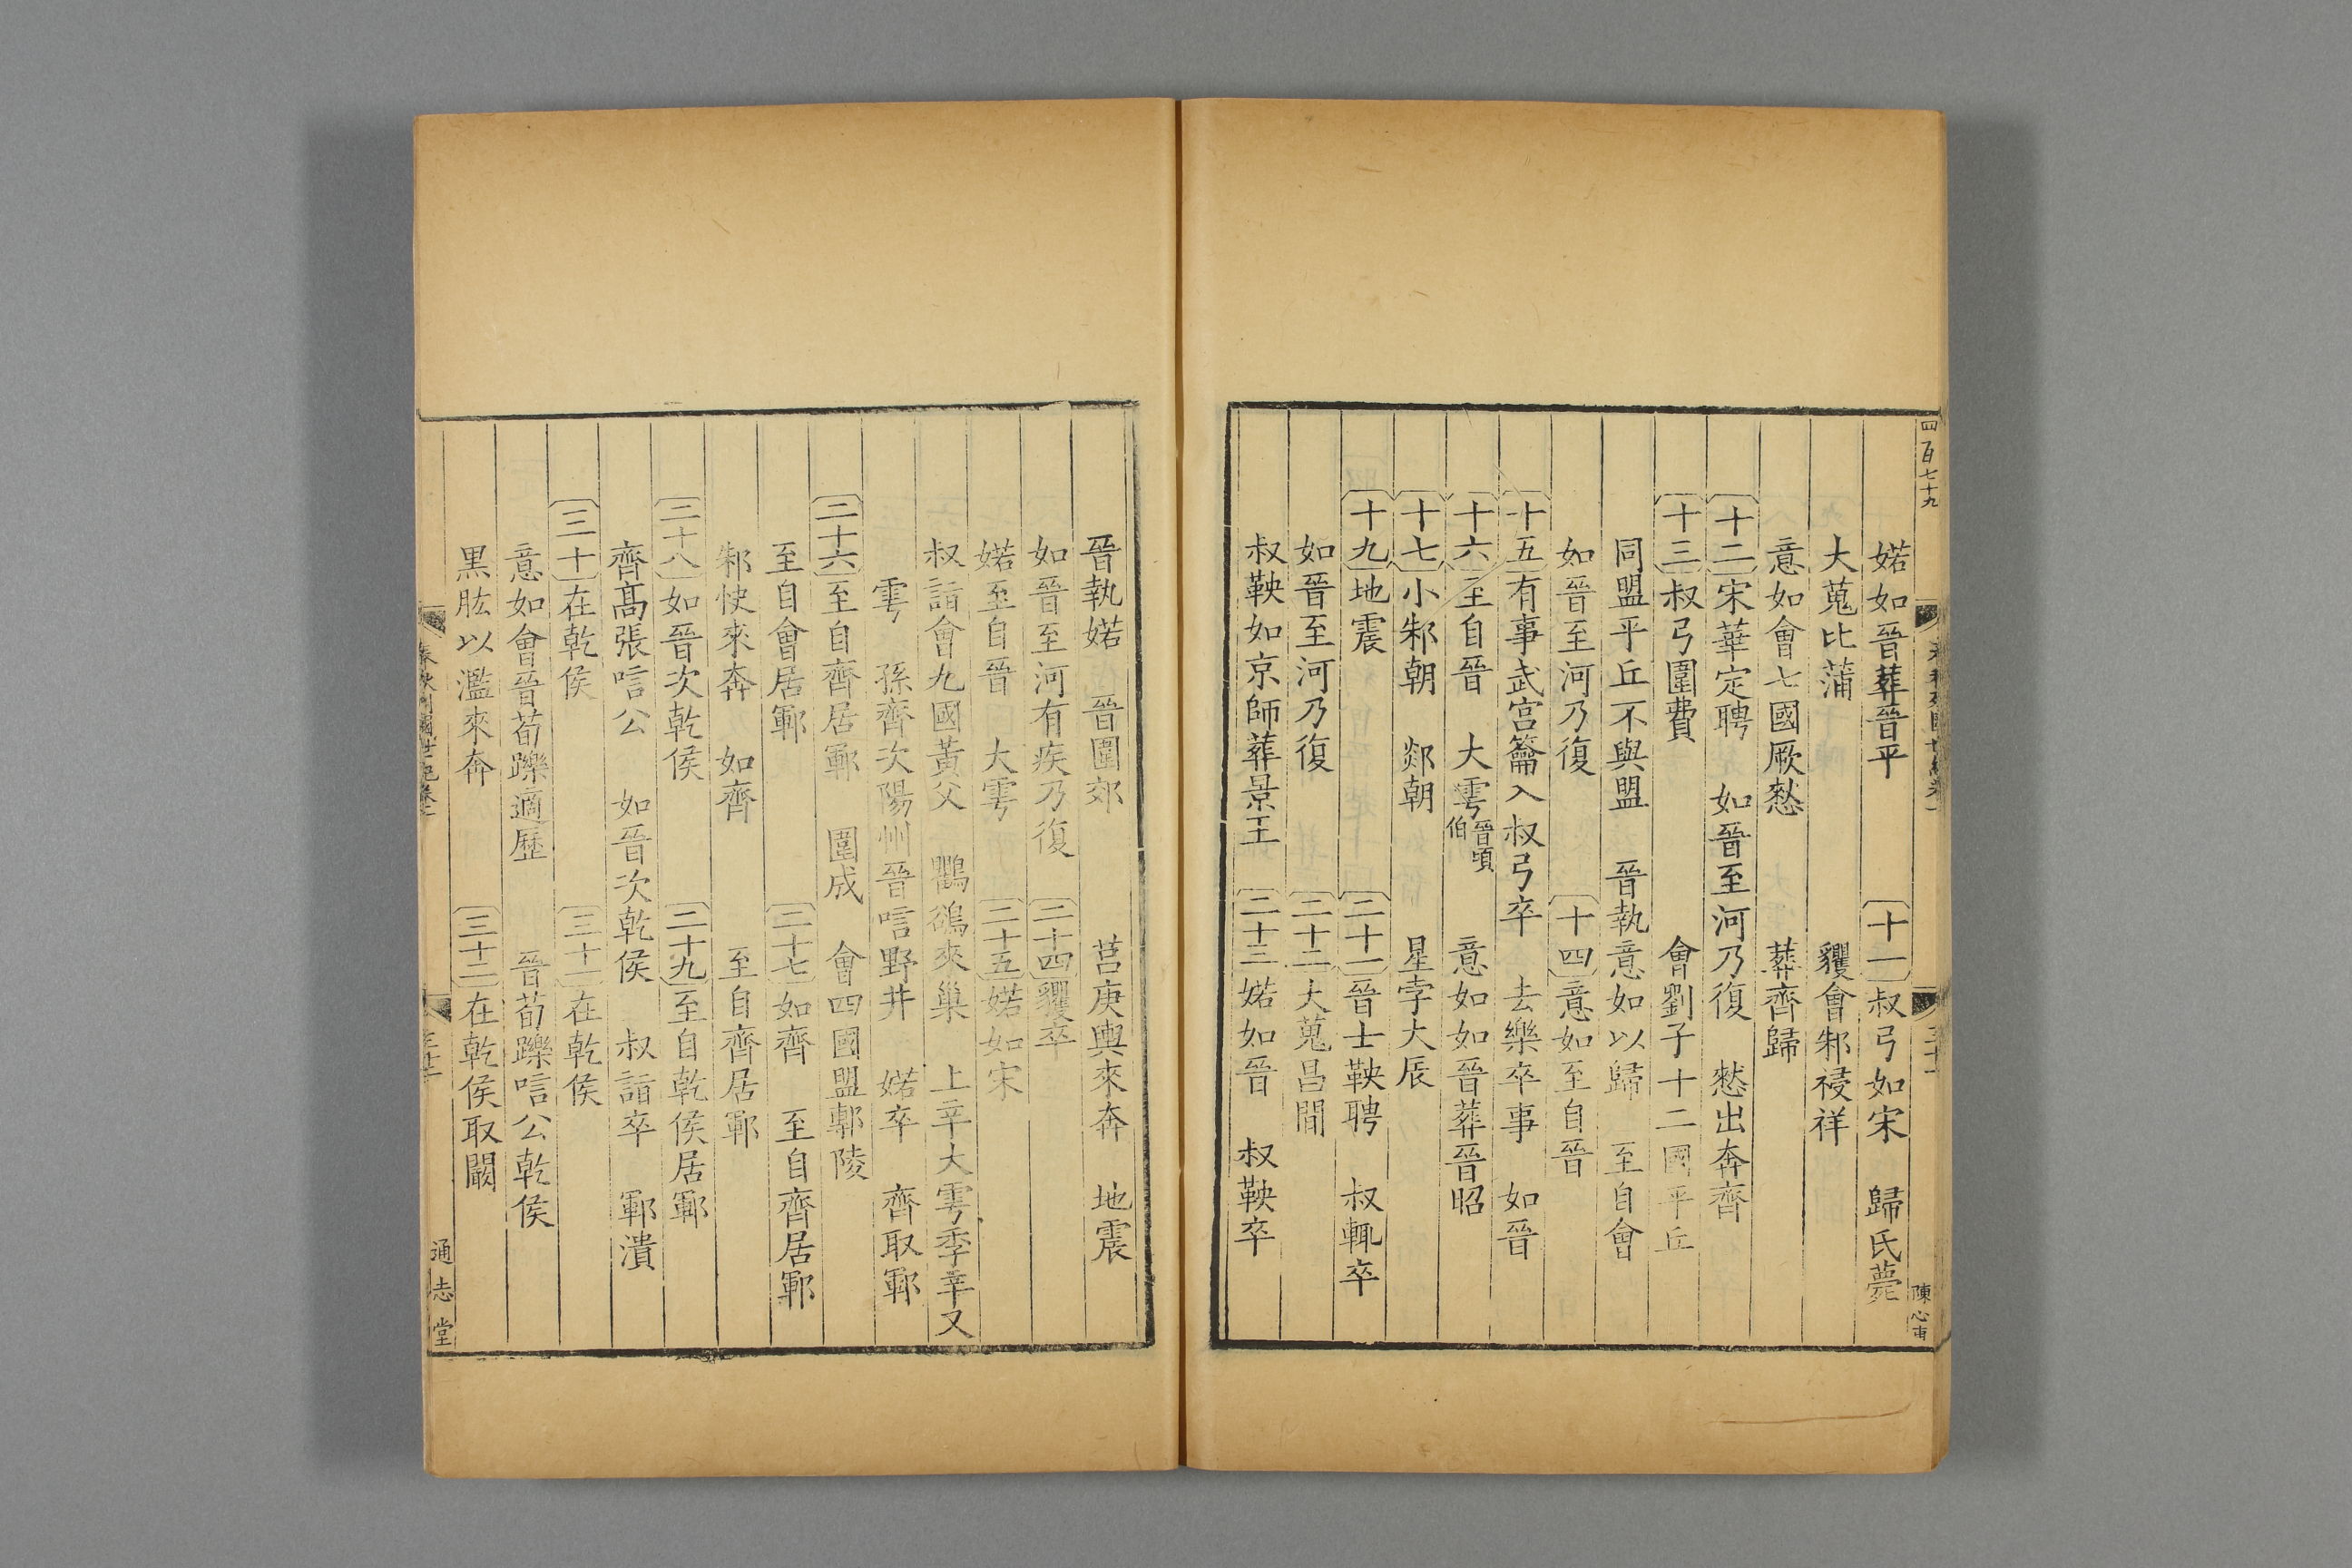 四百七十九
陳心甫
婼如晉葬晉平 十一 叔弓如宋 歸氏薨
大蒐比蒲 貜會邾祲祥
意如會七國厥憖 葬齊歸
十二 宋華定聘 如晉至河乃復 憖出奔齊
十三 叔弓圍費 會劉子十二國平丘
同盟平丘不與盟 晉執意如以歸 至自會
如晉至河乃復 十四 意如至自晉
十五 有事武宮籥入叔弓卒 去樂卒事 如晉
十六 至自晉 大雩 晉頃伯 意如如晉葬晉昭
十七 小邾朝 郯朝 星孛大辰
十九 地震 二十一 晉士鞅聘 叔輒卒
如晉至河乃復 二十二 大蒐昌間
叔鞅如京師葬景王 二十三 婼如晉 叔鞅卒
晉執婼 晉圍郊 莒庚輿來奔 地震
如晉至河有疾乃復 二十四 貜卒
婼至自晉 大雩 二十五 婼如宋
叔詣會九國黃父 鸜鵒來巢 上辛大雩季辛又
雩 孫齊次陽州晉唁野井 婼卒 齊取鄆
二十六 至自齊居鄆 圍成 會四國盟鄟陵
至自會居鄆 二十七 如齊 至自齊居鄆
邾快來奔 如齊 至自齊居鄆
二十八 如晉次乾侯 二十九 至自乾侯居鄆
齊高張唁公 如晉次乾侯 叔詣卒 鄆潰
三十 在乾侯 三十一 在乾侯
意如會晉荀躒適歷 晉荀躒唁公乾侯
黑肱以濫來奔 三十二 在乾侯取闞
通志堂